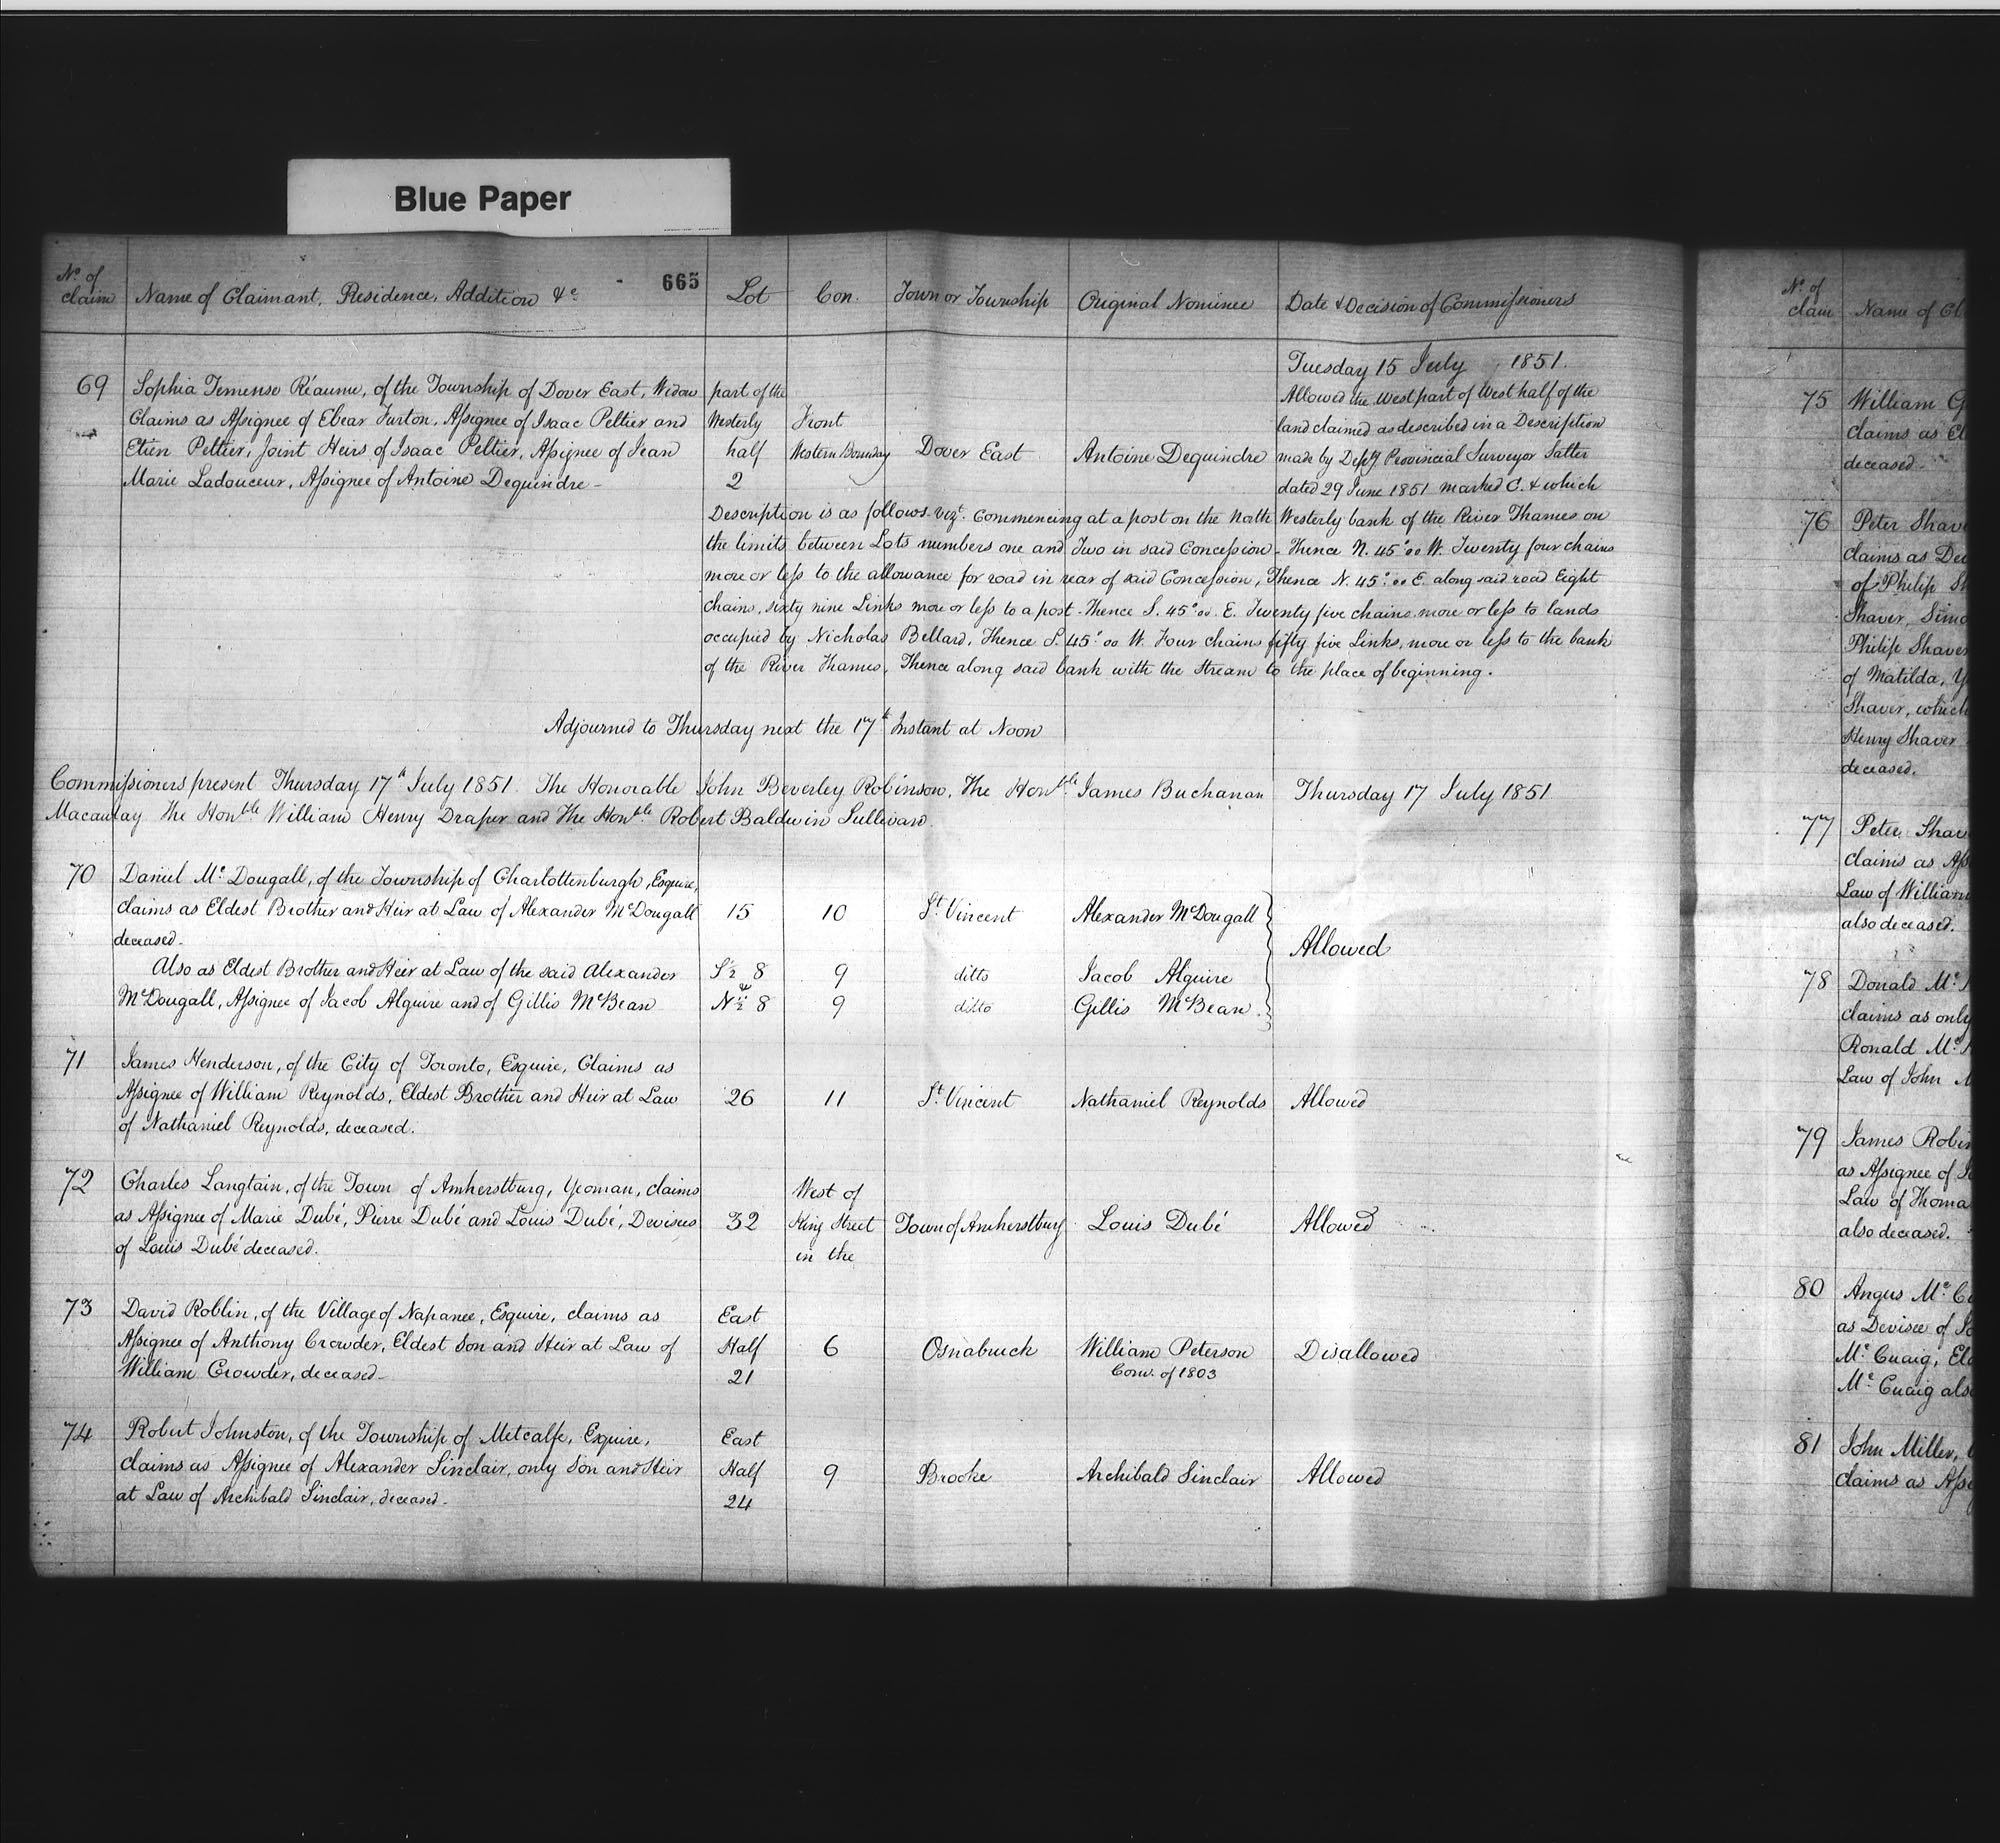 Blue Paper
No. of claim | Name of Claimant, Residence, Addition &c | 665 | Lot | Con. | Town or Township | Original Nominee | Date & Decision of Commissioners
Tuesday 15 July 1851.
69 Sophia Réaume, of the Township of Dover East, Widow
Claims as Assignee of Furton, Assignee of Isaac Peltier and
Etien Peltier, Joint Heirs of Isaac Peltier, Assignee of Jean
Marie Ladouceur, Assignee of Antoine Dequindre -
part of the
Westerly
half
2
Front
Western Boundary
Dover East
Antoine Dequindre
Allowed the West part of West half of the
land claimed as described in a Description
made by Depy Provincial Surveyor Salter
dated 29 June 1851 marked C. & which
Description is as follows. vizt. Commencing at a post on the North Westerly bank of the River Thames on
the limits between Lots numbers one and Two in said Concession - Thence N. 45°.00 W. Twenty four chains
more or less to the allowance for road in rear of said Concession, Thence N. 45°.00 E. along said road Eight
chains, sixty nine Links more or less to a post - Thence S. 45°.00. E. Twenty five chains more or less to lands
occupied by Nicholas Bellard, Thence S. 45°.00 W. Four chains fifty five Links, more or less to the bank
of the River Thames, Thence along said bank with the stream to the place of beginning.
Adjourned to Thursday next the 17th Instant at Noon
Commissioners present Thursday 17th July 1851. The Honorable John Beverley Robinson, The Honble. James Buchanan
Macaulay The Honble William Henry Draper and The Honble Robert Baldwin Sullivan.
Thursday 17 July 1851
70 Daniel Mc Dougall, of the Township of Charlottenburgh, Esquire,
claims as Eldest Brother and Heir at Law of Alexander McDougall | 15 | 10 | St. Vincent | Alexander McDougall
deceased.
Allowed
Also as Eldest Brother and Heir at Law of the said Alexander | S½ 8 | 9 | ditto | Jacob Alguire
McDougall, Assignee of Jacob Alguire and of Gillis McBean | N½ 8 | 9 | ditto | Gillis McBean
71 James Henderson, of the City of Toronto, Esquire, Claims as
Assignee of William Reynolds, Eldest Brother and Heir at Law | 26 | 11 | St. Vincent | Nathaniel Reynolds | Allowed
of Nathaniel Reynolds, deceased.
72 Charles Langtain, of the Town of Amherstburg, Yeoman, claims | West of
as Assignee of Marie Dubé, Pierre Dubé and Louis Dubé, Devisees | 32 | King Street | Town of Amherstburg | Louis Dubé | Allowed
of Louis Dubé deceased. | in the
73 David Roblin, of the Village of Napanee, Esquire, claims as | East
Assignee of Anthony Crowder, Eldest Son and Heir at Law of | Half | 6 | Osnabruck | William Peterson | Disallowed
William Crowder, deceased - | 21 | Com. of 1803
74 Robert Johnston, of the Township of Metcalfe, Esquire, | East
claims as Assignee of Alexander Sinclair, only Son and Heir | Half | 9 | Brooke | Archibald Sinclair | Allowed
at Law of Archibald Sinclair, deceased - | 24
No. of claim | Name of Cl
75 William G
claims as El
deceased -
76 Peter Shav
claims as De
of Philip Sh
Shaver, Simo
Philip Shaver
of Matilda, Y
Shaver, which
Henry Shaver
deceased.
77 Peter Shav
claims as Ass
Law of William
also deceased.
78 Donald Mc.
claims as only
Ronald Mc.
Law of John M
79 James Robin
as Assignee of
Law of Thoma
also deceased.
80 Angus Mc. C
as Devisee of
Mc. Cuaig, Eld
Mc. Cuaig also
81 John Miller,
claims as Assi